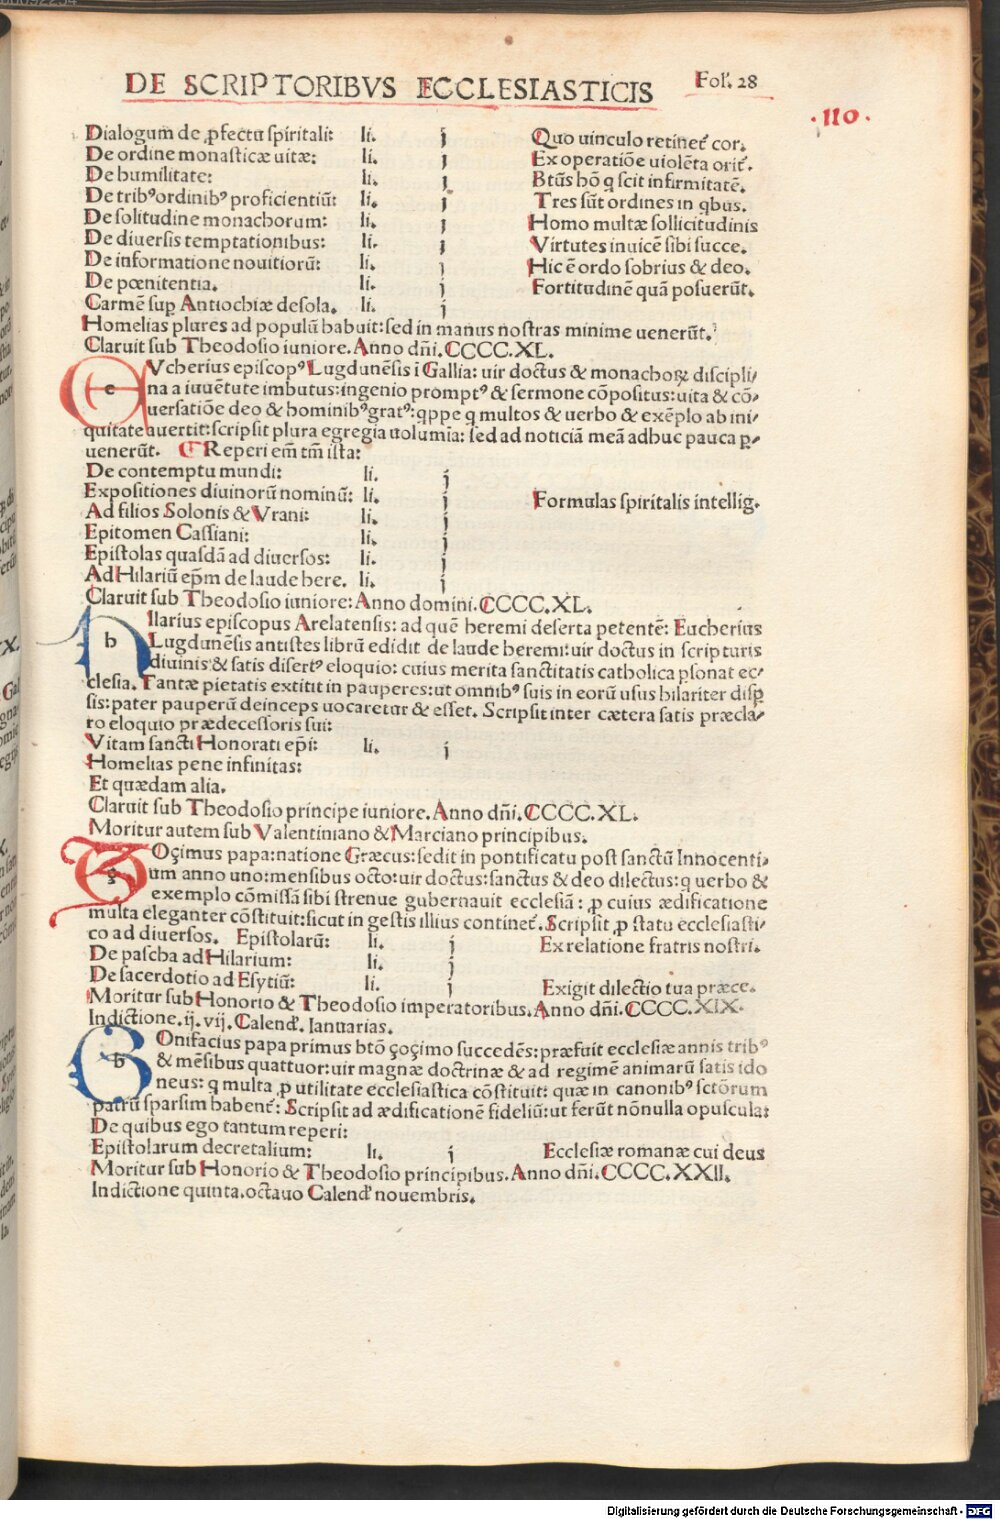 DE SCRIPTORIBVS ECCLESIASTICIS Fol. 28
.110.
Dialogum de ꝓfectu spiritali: li. j Quo uinculo retinet̉ cor.
De ordine monasticæ uitæ: li. j Ex operatiōe uiolēta orit̉.
De humilitate: li. j Btūs hō q scit infirmitatē.
De tribꝰ ordinibꝰ proficientiū: li. j Tres sūt ordines in qbus.
De solitudine monachorum: li. j Homo multæ sollicitudinis
De diuersis temptationibus: li. j Virtutes inuicē sibi succe.
De informatione nouitiorū: li. j Hic ē ordo sobrius & deo.
De pœnitentia. li. j Fortitudinē quā posuerūt.
Carmē sup Antiochiæ desola. li. j
Homelias plures ad populū habuit: sed in manus nostras minime uenerūt.
Claruit sub Theodosio iuniore. Anno dñi. CCCC.XL.
e Vcherius episcopꝰ Lugdunēsis i Gallia: uir doctus & monachoꝝ discipli/
na a iuuētute imbutus: ingenio promptꝰ & sermone cōpositus: uita & cō/
uersatiōe deo & hominibꝰ gratꝰ: qppe q multos & uerbo & exēplo ab ini/
quitate auertit: scripsit plura egregia uolumīa: sed ad noticiā meā adhuc pauca ꝑ/
uenerūt. ¶ Reperi em̄ tm̄ ista:
De contemptu mundi: li. j
Expositiones diuinorū nominū: li. j Formulas spiritalis intellig.
Ad filios Solonis & Vrani: li. j
Epitomen Cassiani: li. j
Epistolas quasdā ad diuersos: li. j
Ad Hilariū ep̄m de laude here. li. j
Claruit sub Theodosio iuniore: Anno domini. CCCC.XL.
h Ilarius episcopus Arelatensis: ad quē heremi deserta petentē: Eucherius
Lugdunēsis antistes librū edidit de laude heremi: uir doctus in scripturis
diuinis & satis disertꝰ eloquio: cuius merita sanctitatis catholica ꝑsonat ec/
clesia. Tantæ pietatis extitit in pauperes: ut omnibꝰ suis in eorū usus hilariter disꝑ
sis: pater pauperū deinceps uocaretur & esset. Scripsit inter cætera satis præcla/
ro eloquio prædecessoris sui:
Vitam sancti Honorati ep̄i: li. j
Homelias pene infinitas:
Et quædam alia.
Claruit sub Theodosio principe iuniore. Anno dñi. CCCC.XL.
Moritur autem sub Valentiniano & Marciano principibus.
ç Oçimus papa: natione Græcus: sedit in pontificatu post sanctū Innocenti/
um anno uno: mensibus octo: uir doctus: sanctus & deo dilectus: q uerbo &
exemplo cōmissā sibi strenue gubernauit ecclesiā: ꝓ cuius ædificatione
multa eleganter cōstituit: sicut in gestis illius continet̉. Scripsit ꝓ statu ecclesiasti/
co ad diuersos. Epistolarū: li. j Ex relatione fratris nostri.
De pascha ad Hilarium: li. j
De sacerdotio ad Esytiū: li. j Exigit dilectio tua præce.
Moritur sub Honorio & Theodosio imperatoribus. Anno dñi. CCCC.XIX.
Indictione. ij. vij. Calend̉. Ianuarias.
b Onifacius papa primus btō çoçimo succedēs: præfuit ecclesiæ annis tribꝰ
& mēsibus quattuor: uir magnæ doctrinæ & ad regimē animarū satis ido
neus: q multa ꝓ utilitate ecclesiastica cōstituit: quæ in canonibꝰ sctōrum
patrū sparsim habent̉: Scripsit ad ædificationē fideliū: ut ferūt nōnulla opuscula:
De quibus ego tantum reperi:
Epistolarum decretalium: li. j Ecclesiæ romanæ cui deus
Moritur sub Honorio & Theodosio principibus. Anno dñi. CCCC.XXII.
Indictione quinta. octauo Calend̉ nouembris.
Digitalisierung gefördert durch die Deutsche Forschungsgemeinschaft - DFG